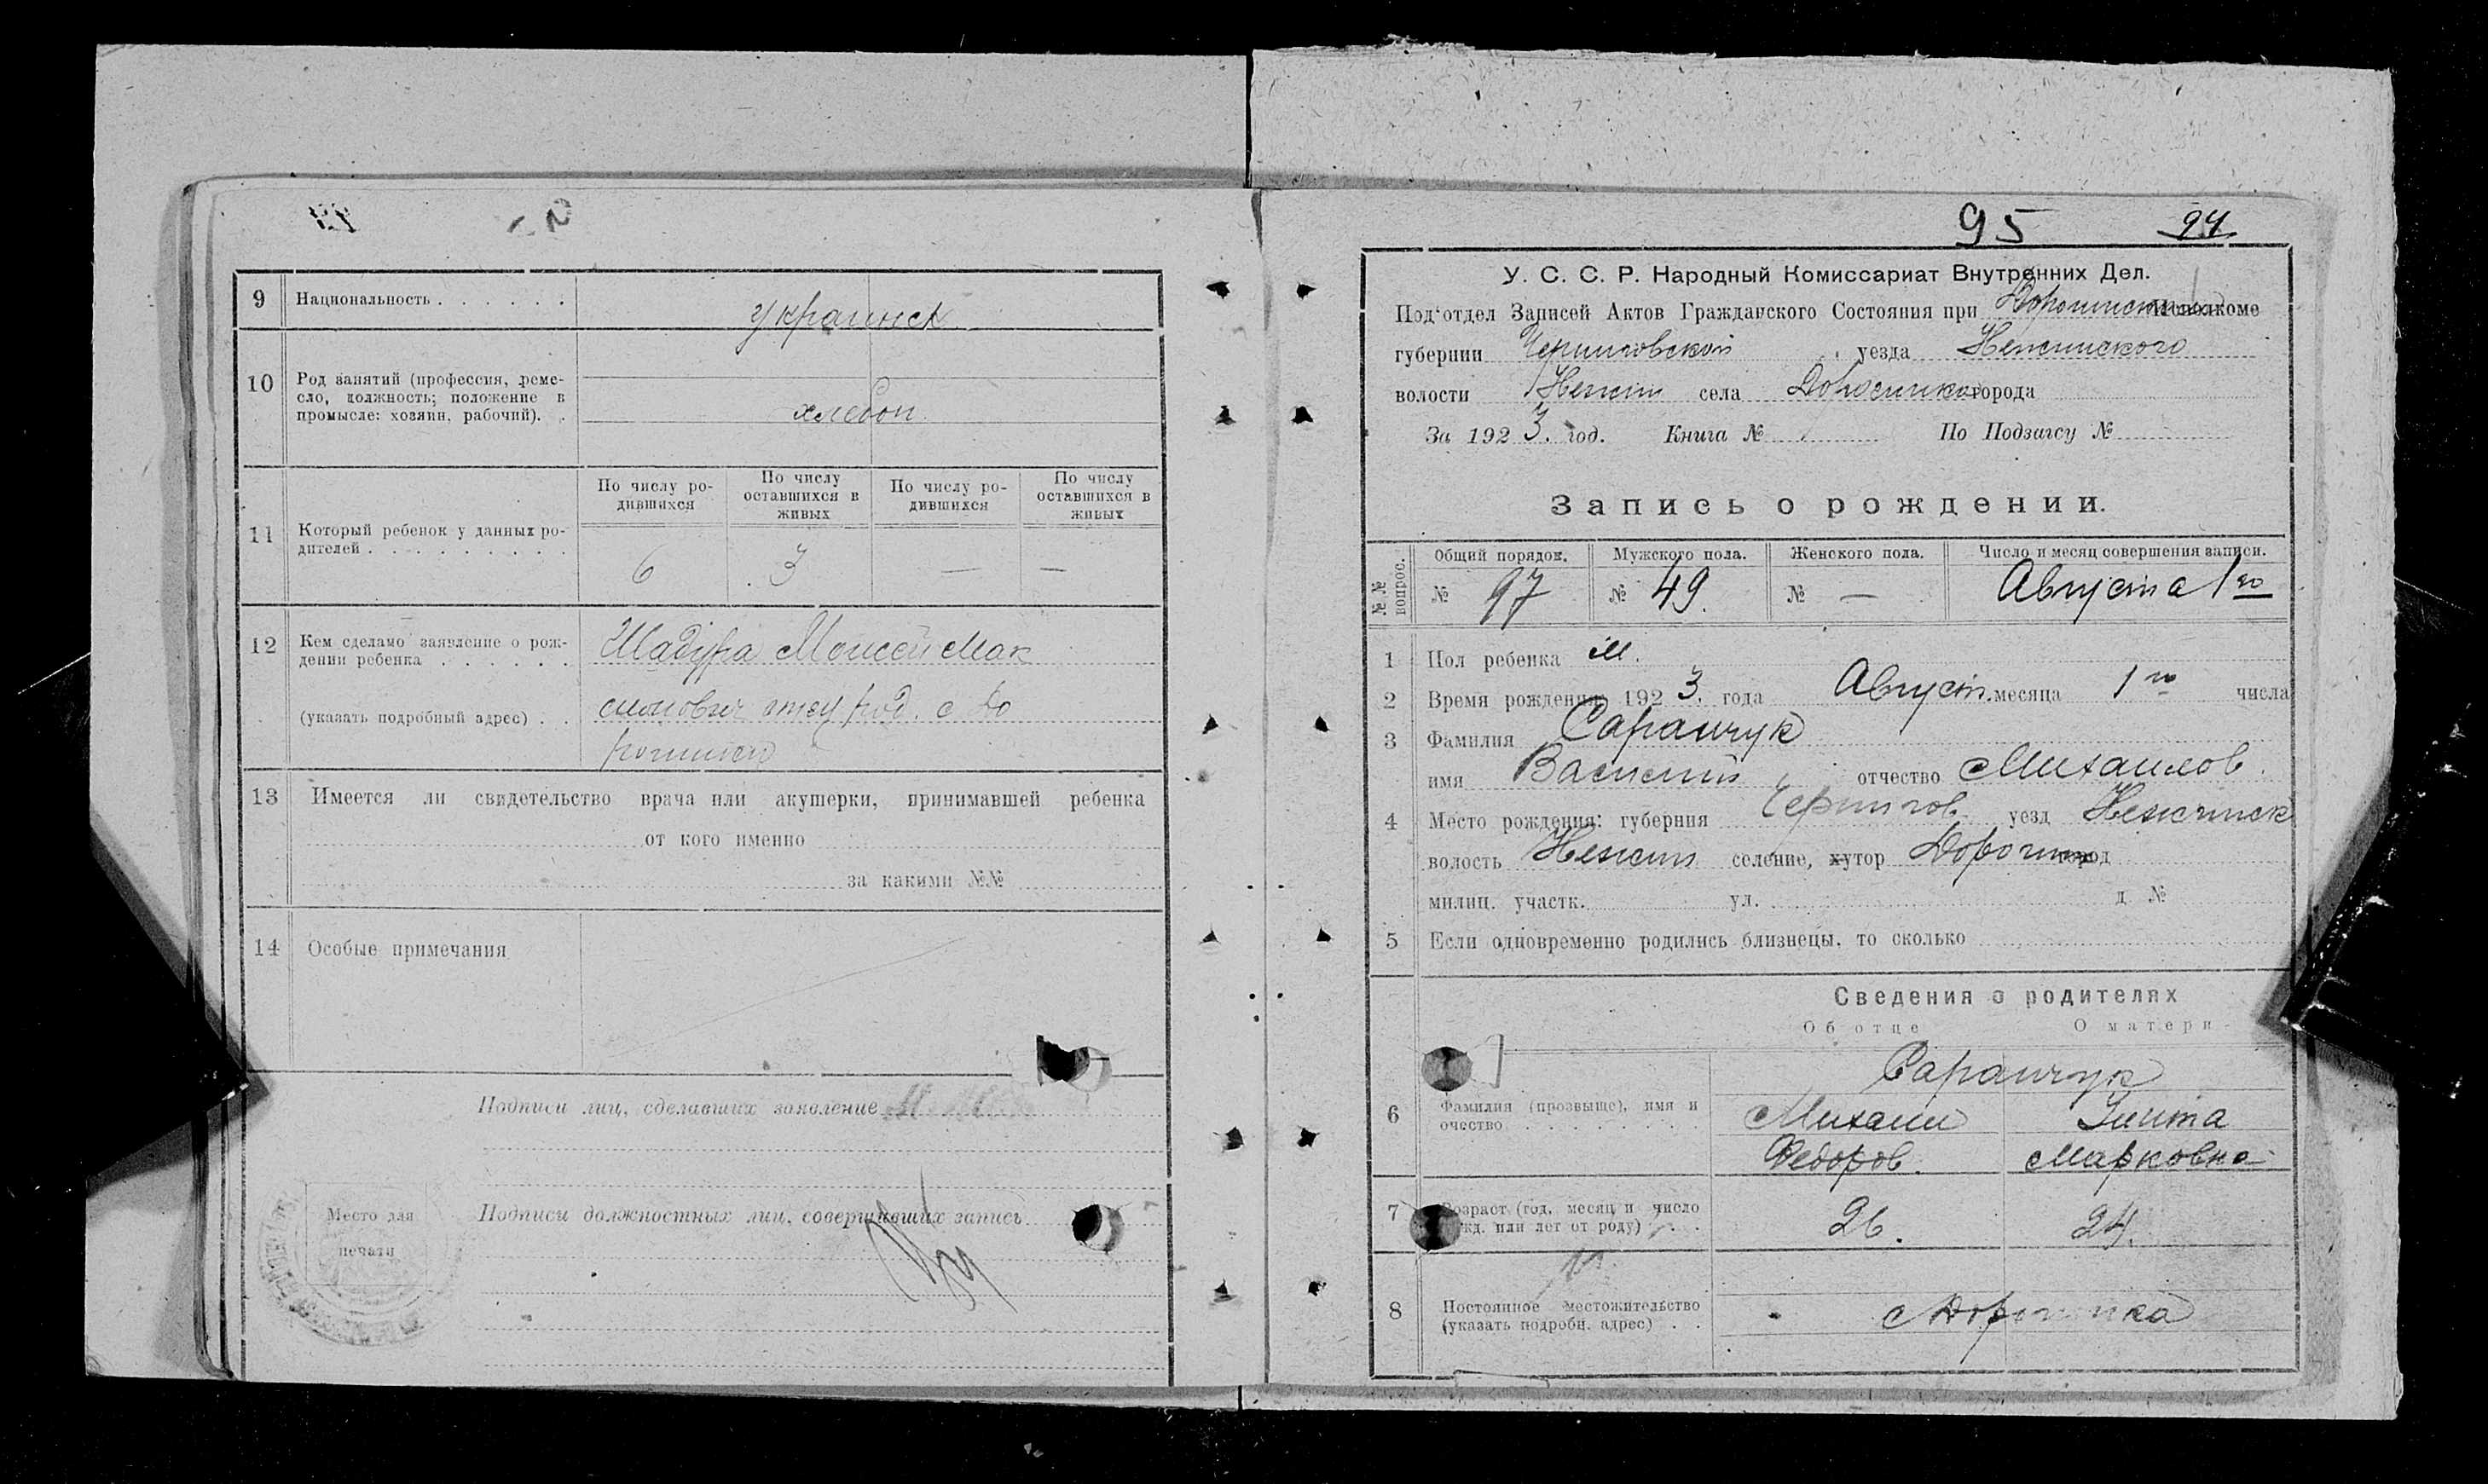 9 Национальность . . . . . .
украинск
10 Род занятий (профессия, реме-
сло, должность; положение в
промысле: хозяин, рабочий). .
хлебоп.
По числу ро-
дившихся
По числу
оставшихся в
живых
По числу ро-
дившихся
По числу
оставшихся в
живых
11 Который ребенок у данных ро-
дителей . . . . . . . . .
6 3 — —
12 Кем сделано заявление о рож-
дении ребенка . . . . . .
(указать подробный адрес) . .
Шадура Моисей Мак
симович отец род. с До
рогинки
13 Имеется ли свидетельство врача или акушерки, принимавшей ребенка
от кого именно
за какими №№
14 Особые примечания
Подписи лиц, сделавших заявление
Подписи должностных лиц, совершивших запись
Место для
печати
95 94
У. С. С. Р. Народный Комиссариат Внутренних Дел.
Под‘отдел Записей Актов Гражданского Состояния при Дорогинском Исполкоме
губернии Черниговской уезда Нежинского
волости Нежин села Дорогинка города
За 1923. год. Книга № По Подзагсу №
Запись о рождении.
№№ вопрос.
Общий порядок. Мужского пола. Женского пола. Число и месяц совершения записи.
№ 97 № 49. № — Августа 1го
1 Пол ребенка м.
2 Время рождения: 1923. года Август. месяца 1го числа
3 Фамилия Сарапчук
имя Василий отчество Михаилов.
4 Место рождения: губерния Чернигов. уезд Нежинск
волость Нежин селение, хутор Дорогин город
милиц. участк. ул. д №
5 Если одновременно родились близнецы, то сколько
Сведения о родителях
Об отце О матери
Сарапчук
6 Фамилия (прозвыще), имя и
очество . . . . . . . .
Михаил
Федоров.
Марковна
7 Возраст (год, месяц и число
рожд. или лет от роду) . .
26. 24.
8 Постоянное местожительство
(указать подробн. адрес) . .
с Дорогинка